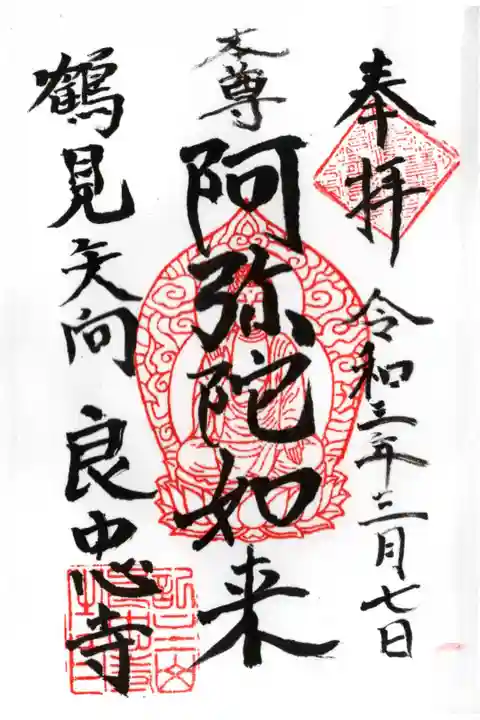 奉拝
令和三年三月七日
本尊
阿弥陀如来
鶴見矢向 良忠寺